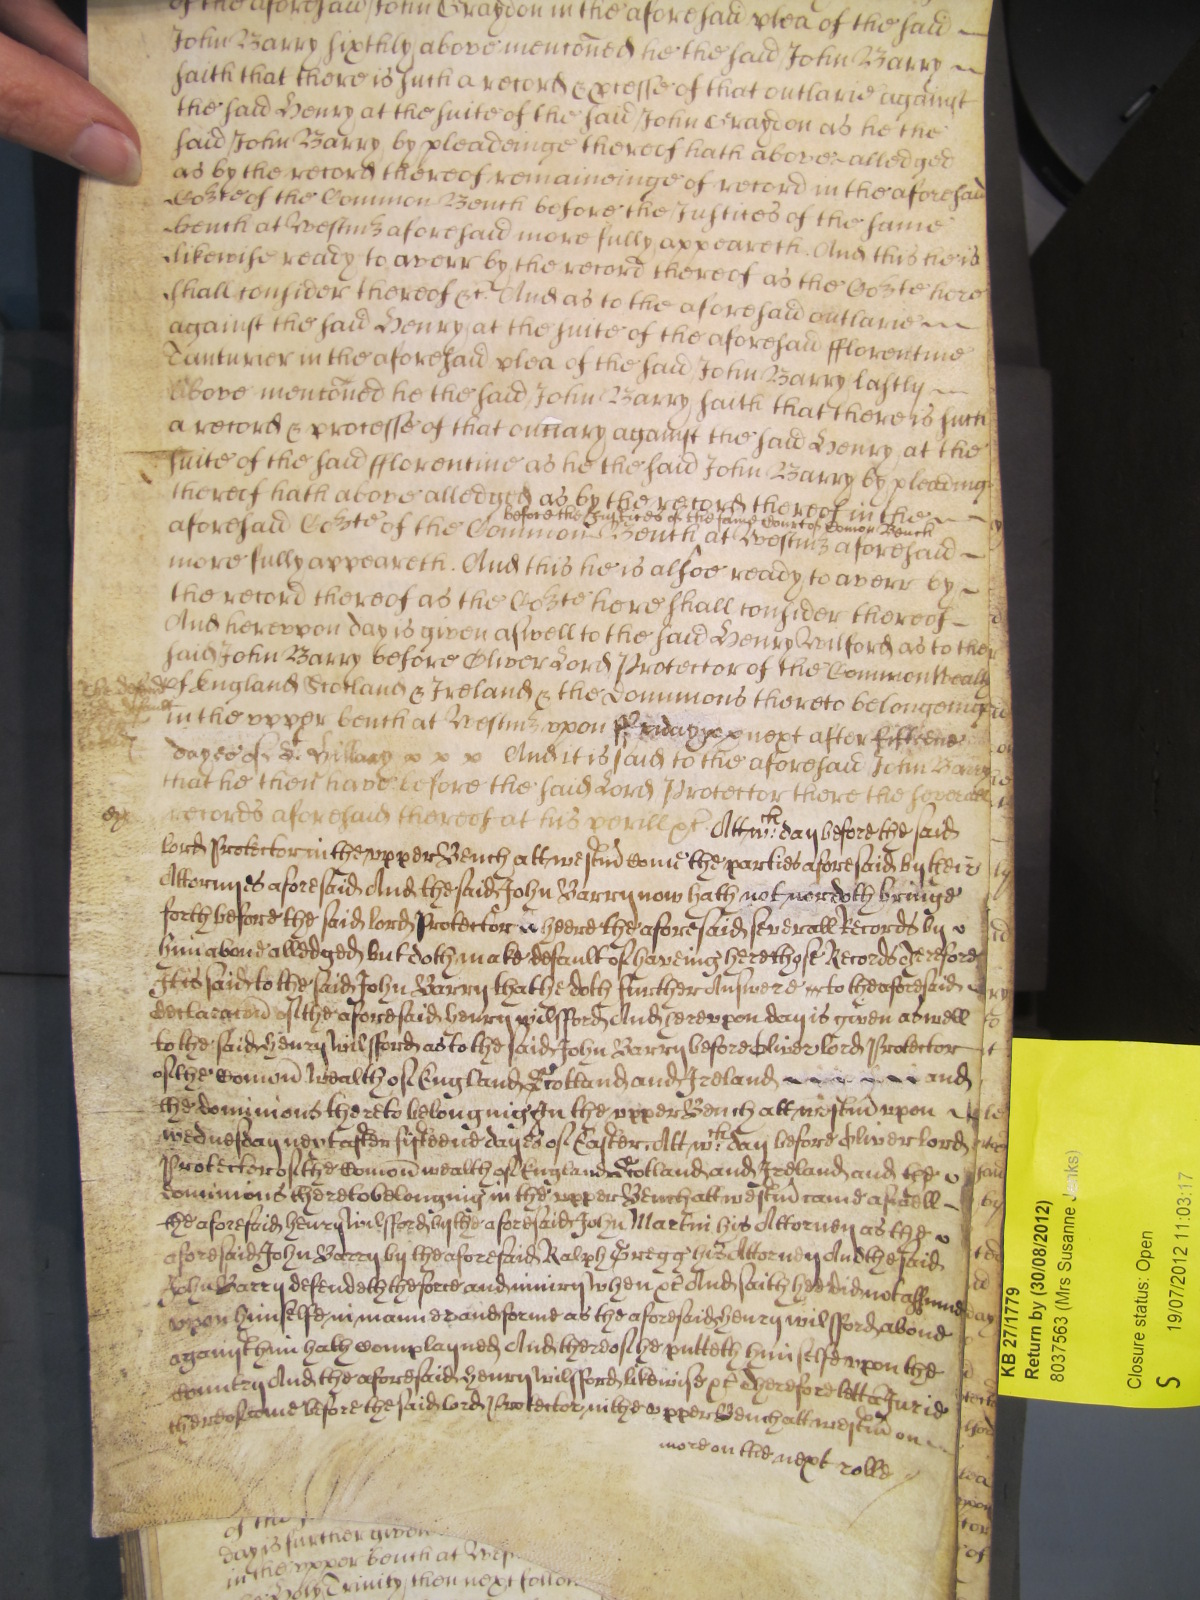 of the aforesaid John Graydon in the aforesaid plea of the said
John Barry sixthly above mentoned he the said John Barry
saith that there is such a record & processe of that outlarie against
the said Henry at the suite of the said John Graydon as he the
said John Barry by pleadeinge thereof hath above alledged
as by the record thereof remaineinge of record in the aforesaid
Co:rte of the Common Bench before the Justices of the same
bench at Westmr aforesaid more fully appeareth. And this he is
likewise ready to averr by the record thereof as the Co:rte here
shall consider thereof &c. And as to the aforesaid outlarie
against the said Henry at the suite of the aforesaid fflorentine
Tanturier in the aforesaid plea of the said John Barry lastly
above mentoned he the said John Barry saith that there is such
a record & processe of that outlary against the said Henry at the
suite of the said fflorentine as he the said John Barry by pleading
thereof hath above alledged as by the record thereof in the
before the Justices of the same Court of Comon Bench
aforesaid Co:rte of the Common Bench at Westmr aforesaid
more fully appeareth. And this he is alsoe ready to averr by
the record thereof as the Co:rte here shall consider thereof
And herevpon day is given aswell to the said Henry Wilford as to the
said John Barry before Oliver Lord Protector of the Commonwealth
of England Scotland & Ireland & the Dominions thereto belongeing
in the vpper bench at Westmr vpon Friday next after fifteene
dayes of St. Hillary x x x And it is said to the aforesaid John Barry
that he then have before the said Lord Protector there the severall
records aforesaid thereof at his perill &c. Att wch: day before the said
lord Protector in the vpper Bench att westm Come the parties aforesaid by their
Attornyes aforesaid And the said John Barry now hath not nor doth bringe
forth before the said lord Protector heere the aforesaid severall Records by
him aboue alledged but doth make default of haveing here those Records Therefore
It is said to the said John Barry that he doth further Answere to the aforesaid
declaracon of the aforesaid henry wilsford And herevpon day is given aswell
to the said Henry wilsford as to the said John Barry before Oliver lord Protector
of the Comon wealth of England Scotland and Ireland and
the dominions thereto belonging In the vpper Bench att westm vpon
wednesday next after fifteene dayes of Easter. Att wch: day before Oliver lord
Protector of the Comon wealth of England Scotland and Ireland and the
dominions thereto belonging in the vpper Bench att westm came aswell
the aforesaid henry wilsford by the aforesaid John Martin his Attorney as the
aforesaid John Barry by the aforesaid Ralph Gregg his Attorney And the said
John Barry defendeth the force and iniury when &c And saith hee did not assume
vpon himselfe in manner and forme as the aforesaid henry wilsford aboue
against him hath Complayned And thereof he putteth himselfe vpon the
Country And the aforesaid Henry wilsford likewise &c Therefore lett a Jurie
thereof come before the said lord Protector in the vpper Bench att westm on
more on the next rolle
of the
day is further given
in the vpper bench at Wes
Holy Trinity then next follow
KB 27/1779
Return by (30/08/2012)
8037563 (Mrs Susanne Jenks)
Closure status: Open
S 19/07/2012 11:03:17